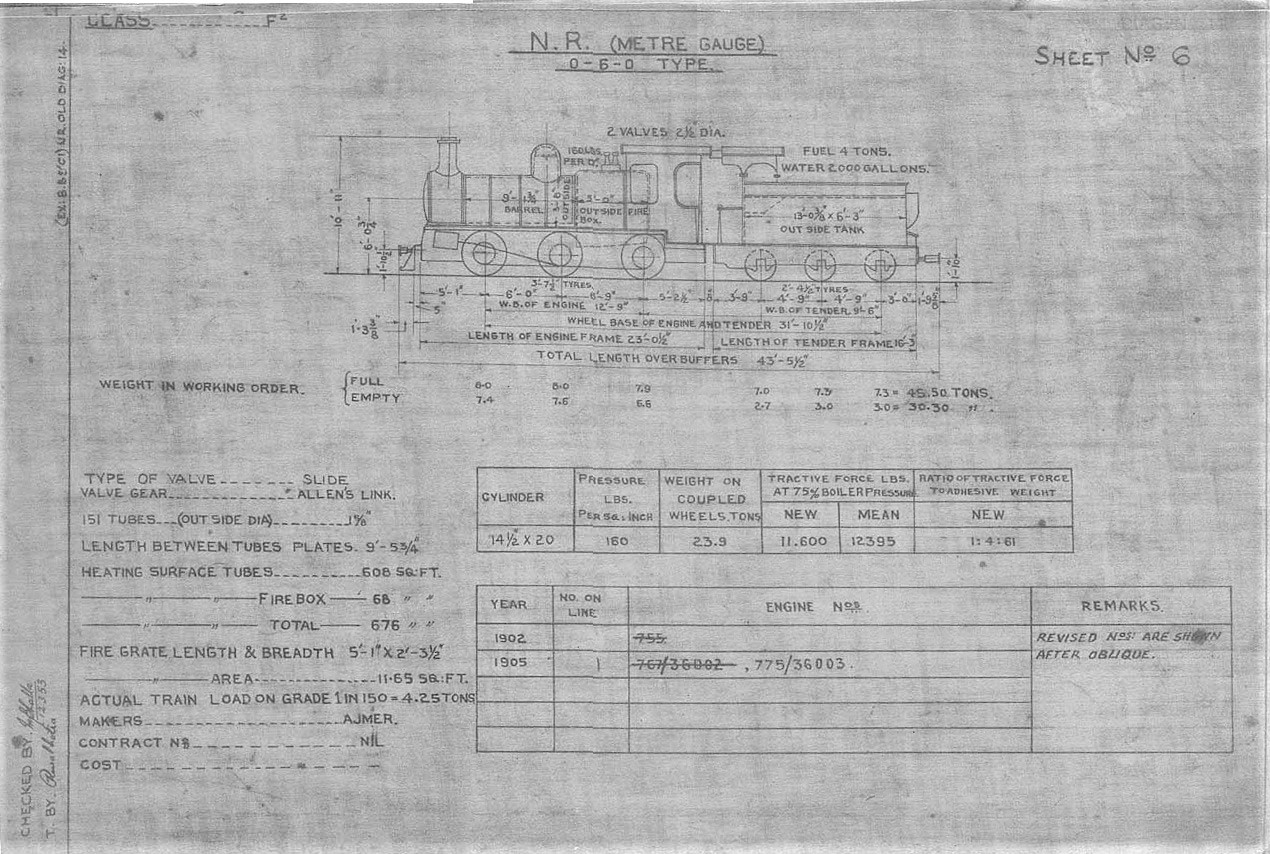 CLASS F²
N.R. (METRE GAUGE)
0-6-0 TYPE.
SHEET Nº 6
(EX: B.B.&.C.I) N.R. OLD DIAG: 14.
2 VALVES 2½" DIA.
160 LBS.
PER □".
FUEL 4 TONS.
WATER 2000 GALLONS.
10'-11"
6'-0¾"
1'-10½"
9'-1⅜"
BARREL
OUTSIDE
5'-0"
OUTSIDE FIRE
BOX.
13'-0⅞" X 6'-3"
OUT SIDE TANK
1'-10"
3'-7½" TYRES.
2'-4½" TYRES
5'-1" 6'-0" 6'-9" 5'-2½" 3'-9" 4'-9" 4'-9" 3'-0" 1'-9⅝"
5"
W.B. OF ENGINE 12'-9"
W.B. OF TENDER 9'-6"
1'-3⅜"
WHEEL BASE OF ENGINE AND TENDER 31'-10½"
LENGTH OF ENGINE FRAME 23'-0½"
LENGTH OF TENDER FRAME 16'-3"
TOTAL LENGTH OVER BUFFERS 43'-5½"
WEIGHT IN WORKING ORDER.
FULL 8.0 8.0 7.9 7.0 7.3 7.3 = 45.50 TONS.
EMPTY 7.4 7.6 6.6 2.7 3.0 3.0 = 30.30 " .
TYPE OF VALVE SLIDE
VALVE GEAR ALLEN'S LINK.
151 TUBES (OUT SIDE DIA) 1⅝"
LENGTH BETWEEN TUBES PLATES. 9'-5¾"
HEATING SURFACE TUBES 608 SQ:FT.
" " FIREBOX 68 " "
" " TOTAL 676 " "
FIRE GRATE, LENGTH & BREADTH 5'-1" X 2'-3½"
" AREA 11.65 SQ:FT.
ACTUAL TRAIN LOAD ON GRADE 1 IN 150 = 4.25 TONS
MAKERS AJMER.
CONTRACT Nº NIL
COST
CYLINDER
PRESSURE
LBS.
PER SQ: INCH
WEIGHT ON
COUPLED
WHEELS, TONS
TRACTIVE FORCE LBS.
AT 75% BOILER PRESSURE
NEW MEAN
RATIO OF TRACTIVE FORCE
TO ADHESIVE WEIGHT
NEW
14½ X 20 160 23.9 11.600 12395 1:4:61
YEAR
NO. ON
LINE
ENGINE Nºs.
REMARKS.
1902 755.
1905 1 767/36002 , 775/36003.
REVISED Nºs: ARE SHOWN
AFTER OBLIQUE.
CHECKED BY.
T. BY.